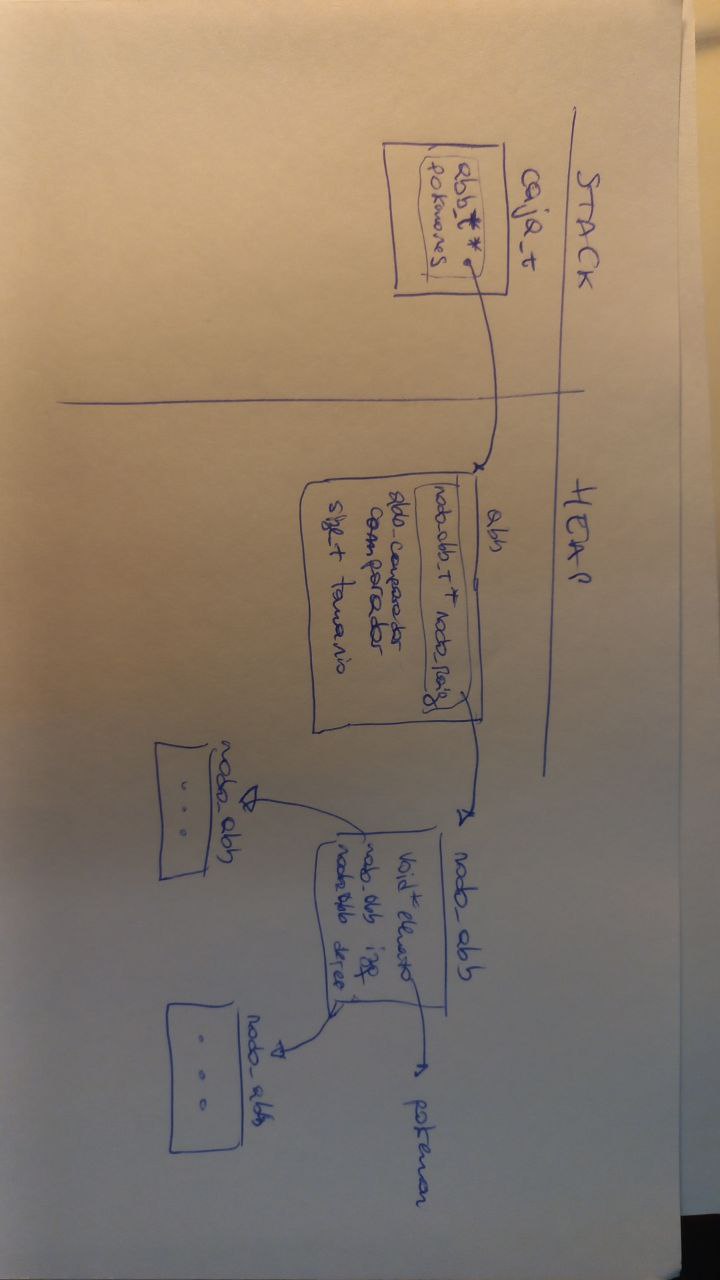 STACK
HEAP
caja_t
abb_t**
pokemones
abb
nodo_abb_t* nodo_raiz
abb_comparador
comparador
size_t tamanio
nodo_abb
void* elemento
nodo_abb izq
nodo_abb derec
pokemon
nodo_abb
. . .
nodo_abb
. . .